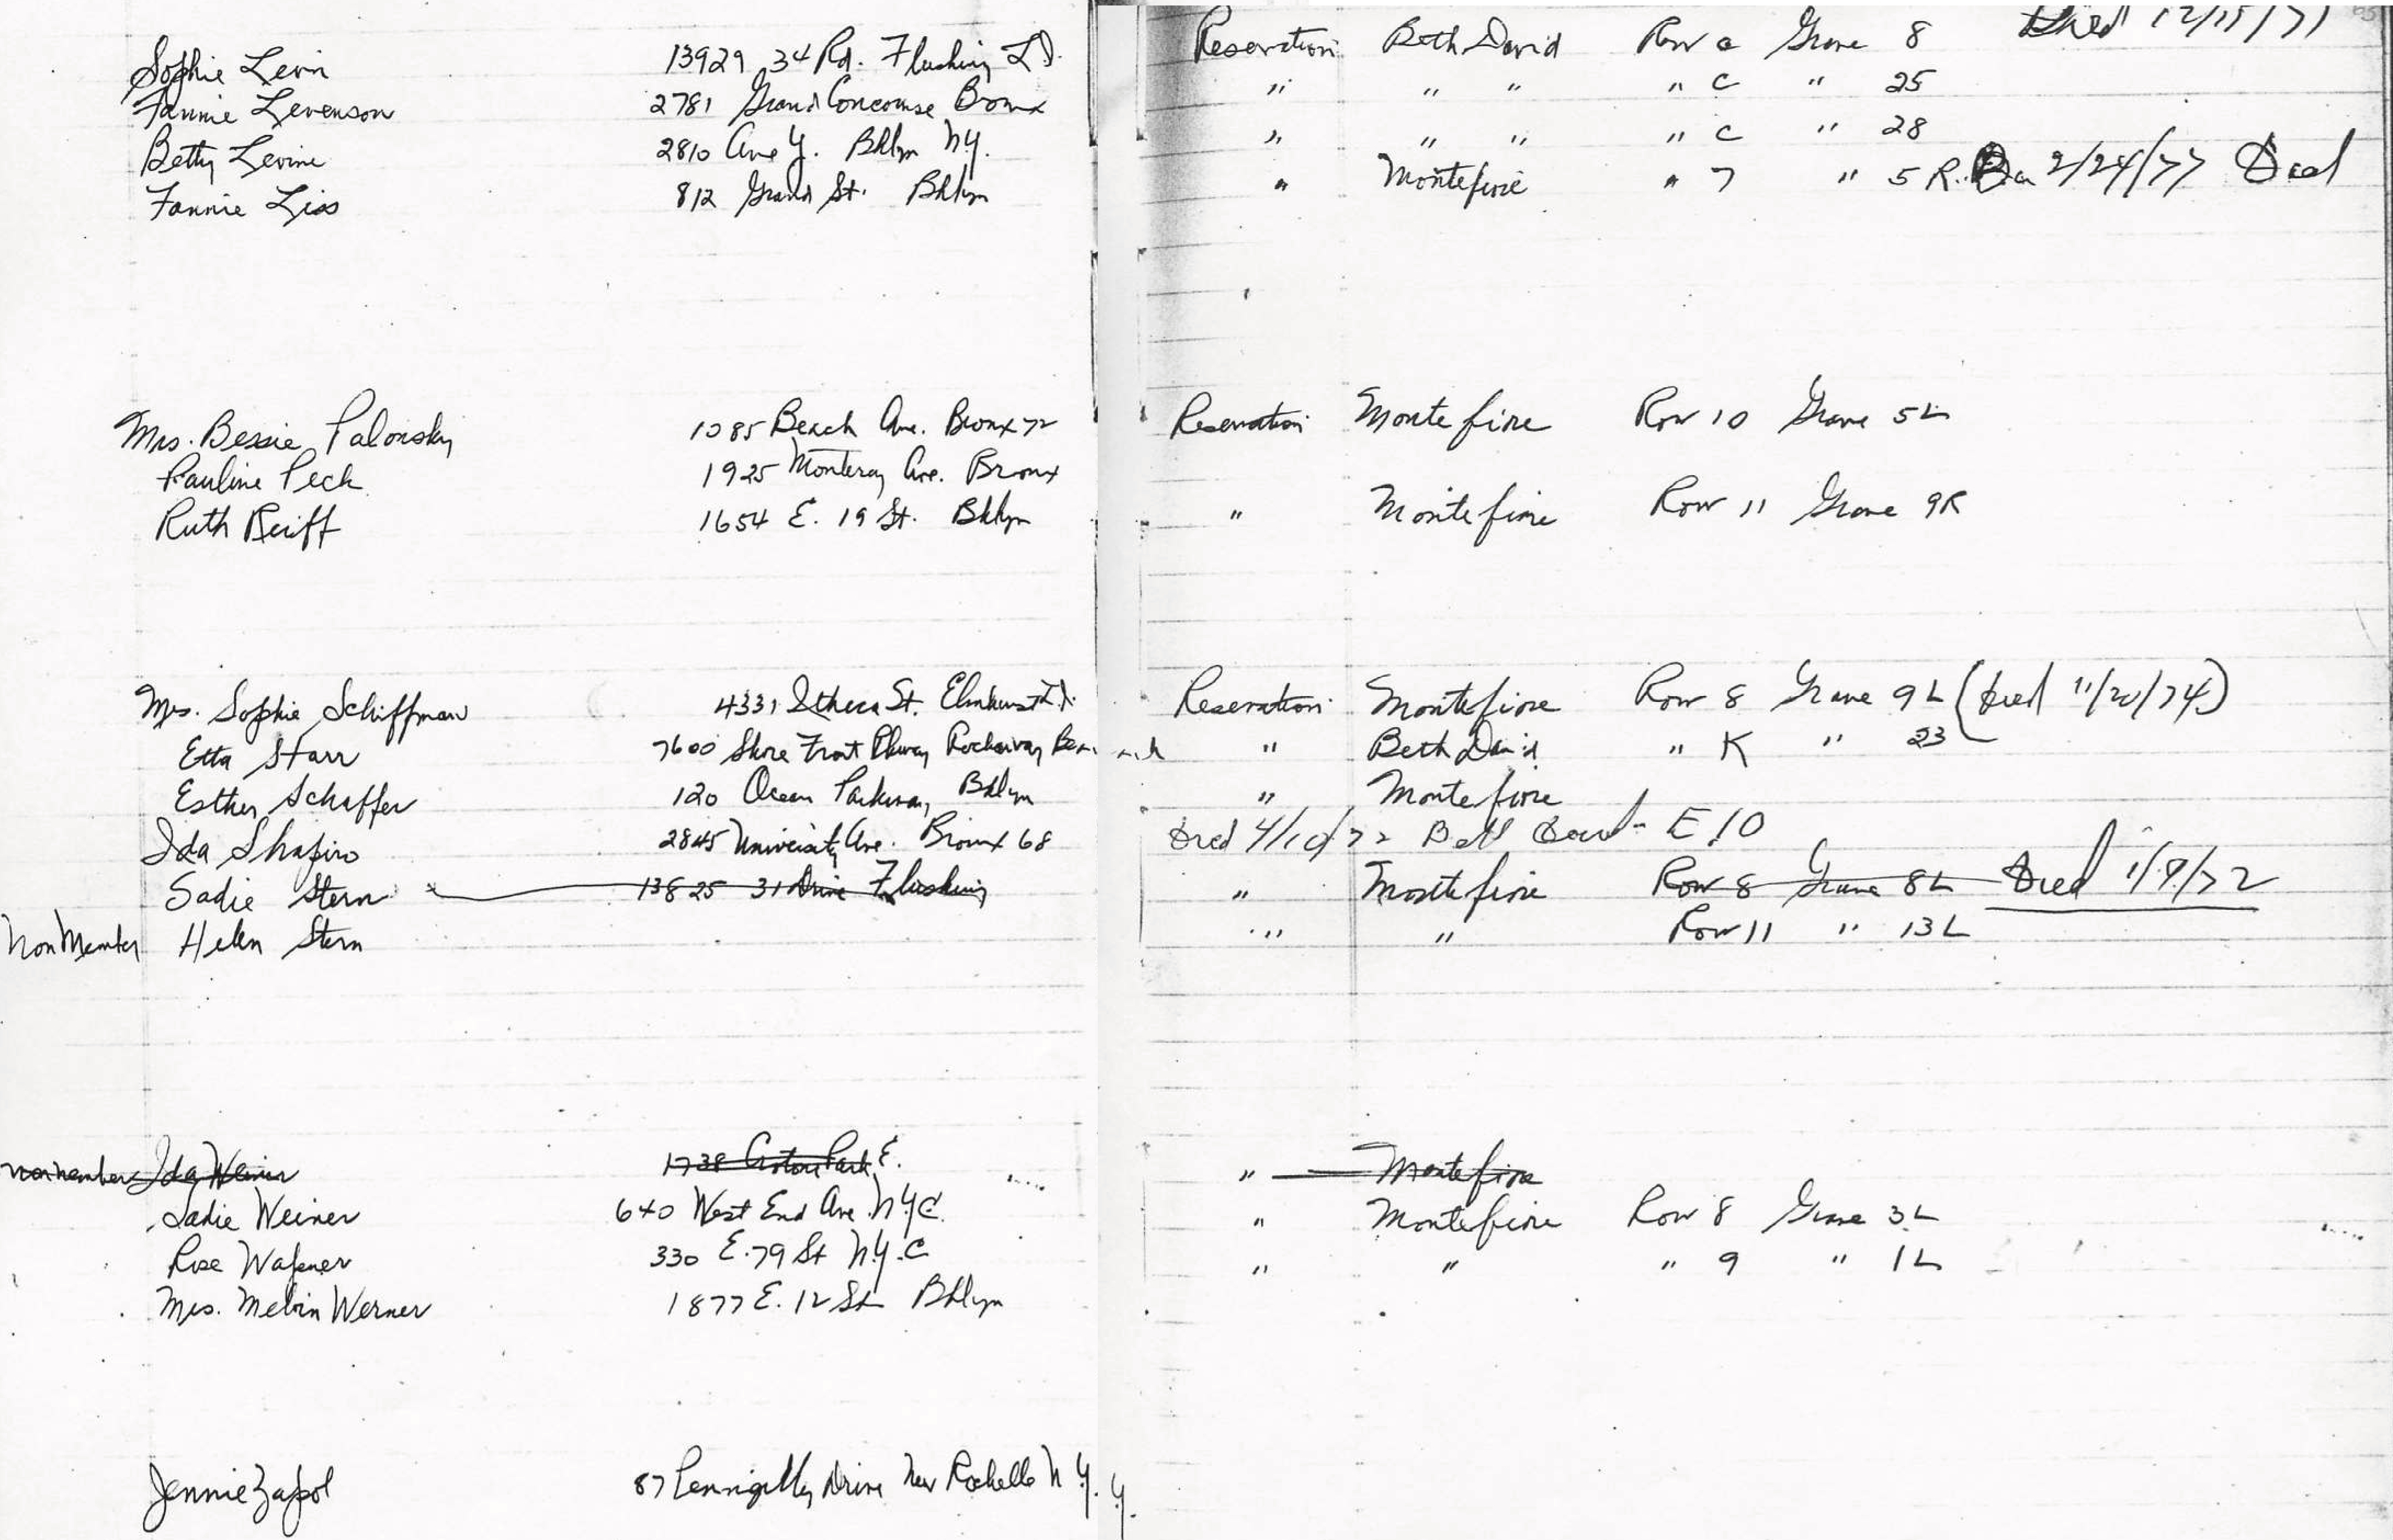 Sophie Levin 13929 34 Rd. Flushing L.I. Reservation Beth David Row a Grave 8 Died 12/15/71
Fannie Levenson 2781 Grand Concourse Bronx " " " " C " 25
Betty Levine 2810 Ave Y. Bklyn N.Y. " " " " C " 28
Fannie Liss 812 Grand St. Bklyn " Montefiore " 7 " 5 R. 2/24/77 Died
Mrs. Bessie Palonsky 1085 Beach Ave. Bronx 72 Reservation Montefiore Row 10 Grave 5L
Pauline Peck 1925 Monterey Ave. Bronx
Ruth Reiff 1654 E. 19 St. Bklyn " Montefiore Row 11 Grave 9R
Mrs. Sophie Schiffman 4331 Ithaca St. Elmhurst L.I. Reservation Montefiore Row 8 Grave 9L (Died 11/20/74)
Etta Starr 7600 Shore Front Pkway Rockaway Beach " Beth David " K " 23
Esther Schaffer 120 Ocean Parkway Bklyn " Montefiore
Ida Shapiro 2845 University Ave. Bronx 68 Died 4/10/72 E 10
Sadie Stern 13825 31 Drive Flushing " Montefiore Row 8 Grave 8L Died 1/9/72
Non Member Helen Stern " " Row 11 " 13L
nonmember Ida Weiner 1738 Croton Park E. " Montefiore
Sadie Weiner 640 West End Ave. N.Y.C. " Montefiore Row 8 Grave 3L
Rose Wapner 330 E. 79 St N.Y.C " " " 9 " 1L
Mrs. Melvin Werner 1877 E. 12 St Bklyn
Jennie Zapol 87 Drive New Rochelle N.Y.